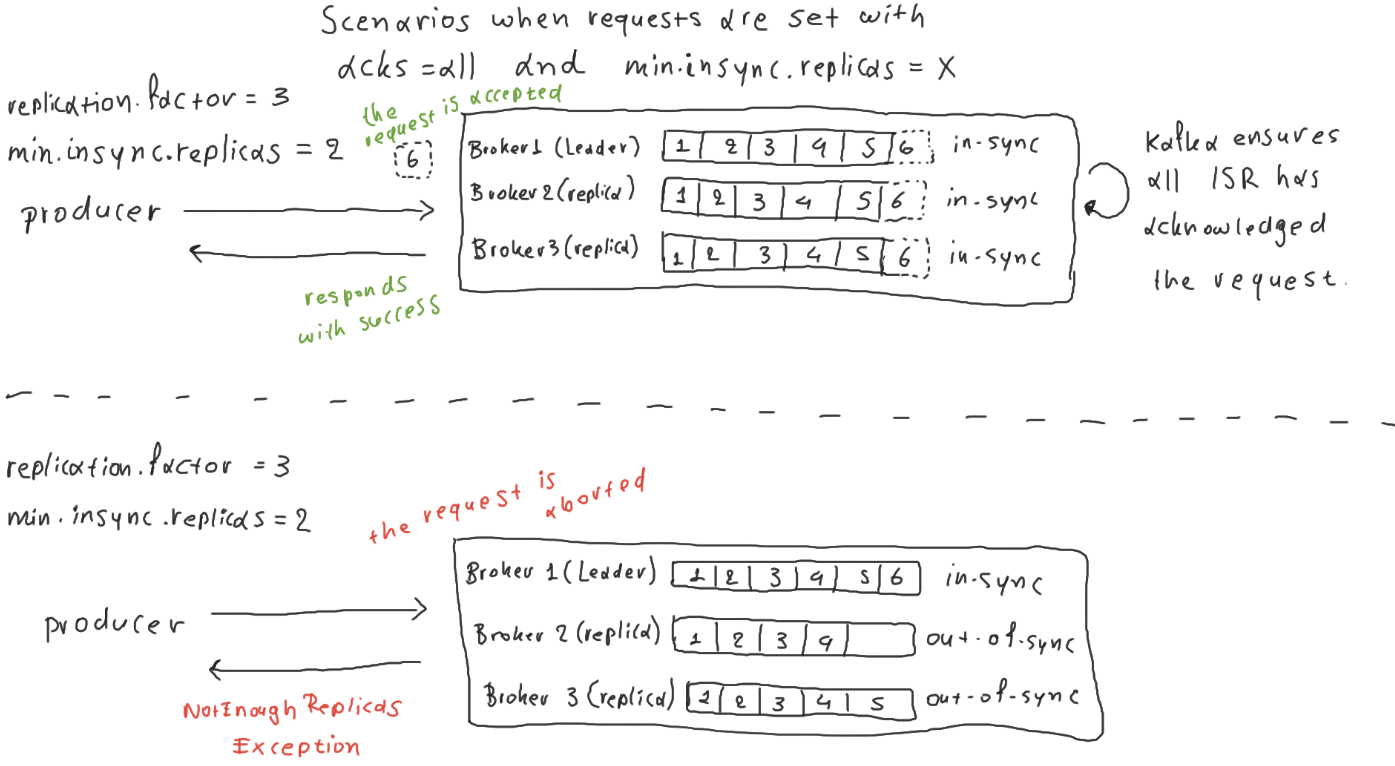 Scenarios when requests are set with
acks = all and min.insync.replicas = X
replication.factor = 3
min.insync.replicas = 2
the request is accepted
6
producer
responds
with success
Broker 1 (Leader) 1 2 3 4 5 6 in-sync
Broker 2 (replica) 1 2 3 4 5 6 in-sync
Broker 3 (replica) 1 2 3 4 5 6 in-sync
Kafka ensures
all ISR has
acknowledged
the request.
replication.factor = 3
min.insync.replicas = 2
the request is aborted
producer
NotEnough Replicas
Exception
Broker 1 (Leader) 1 2 3 4 5 6 in-sync
Broker 2 (replica) 1 2 3 4 out-of-sync
Broker 3 (replica) 1 2 3 4 5 out-of-sync